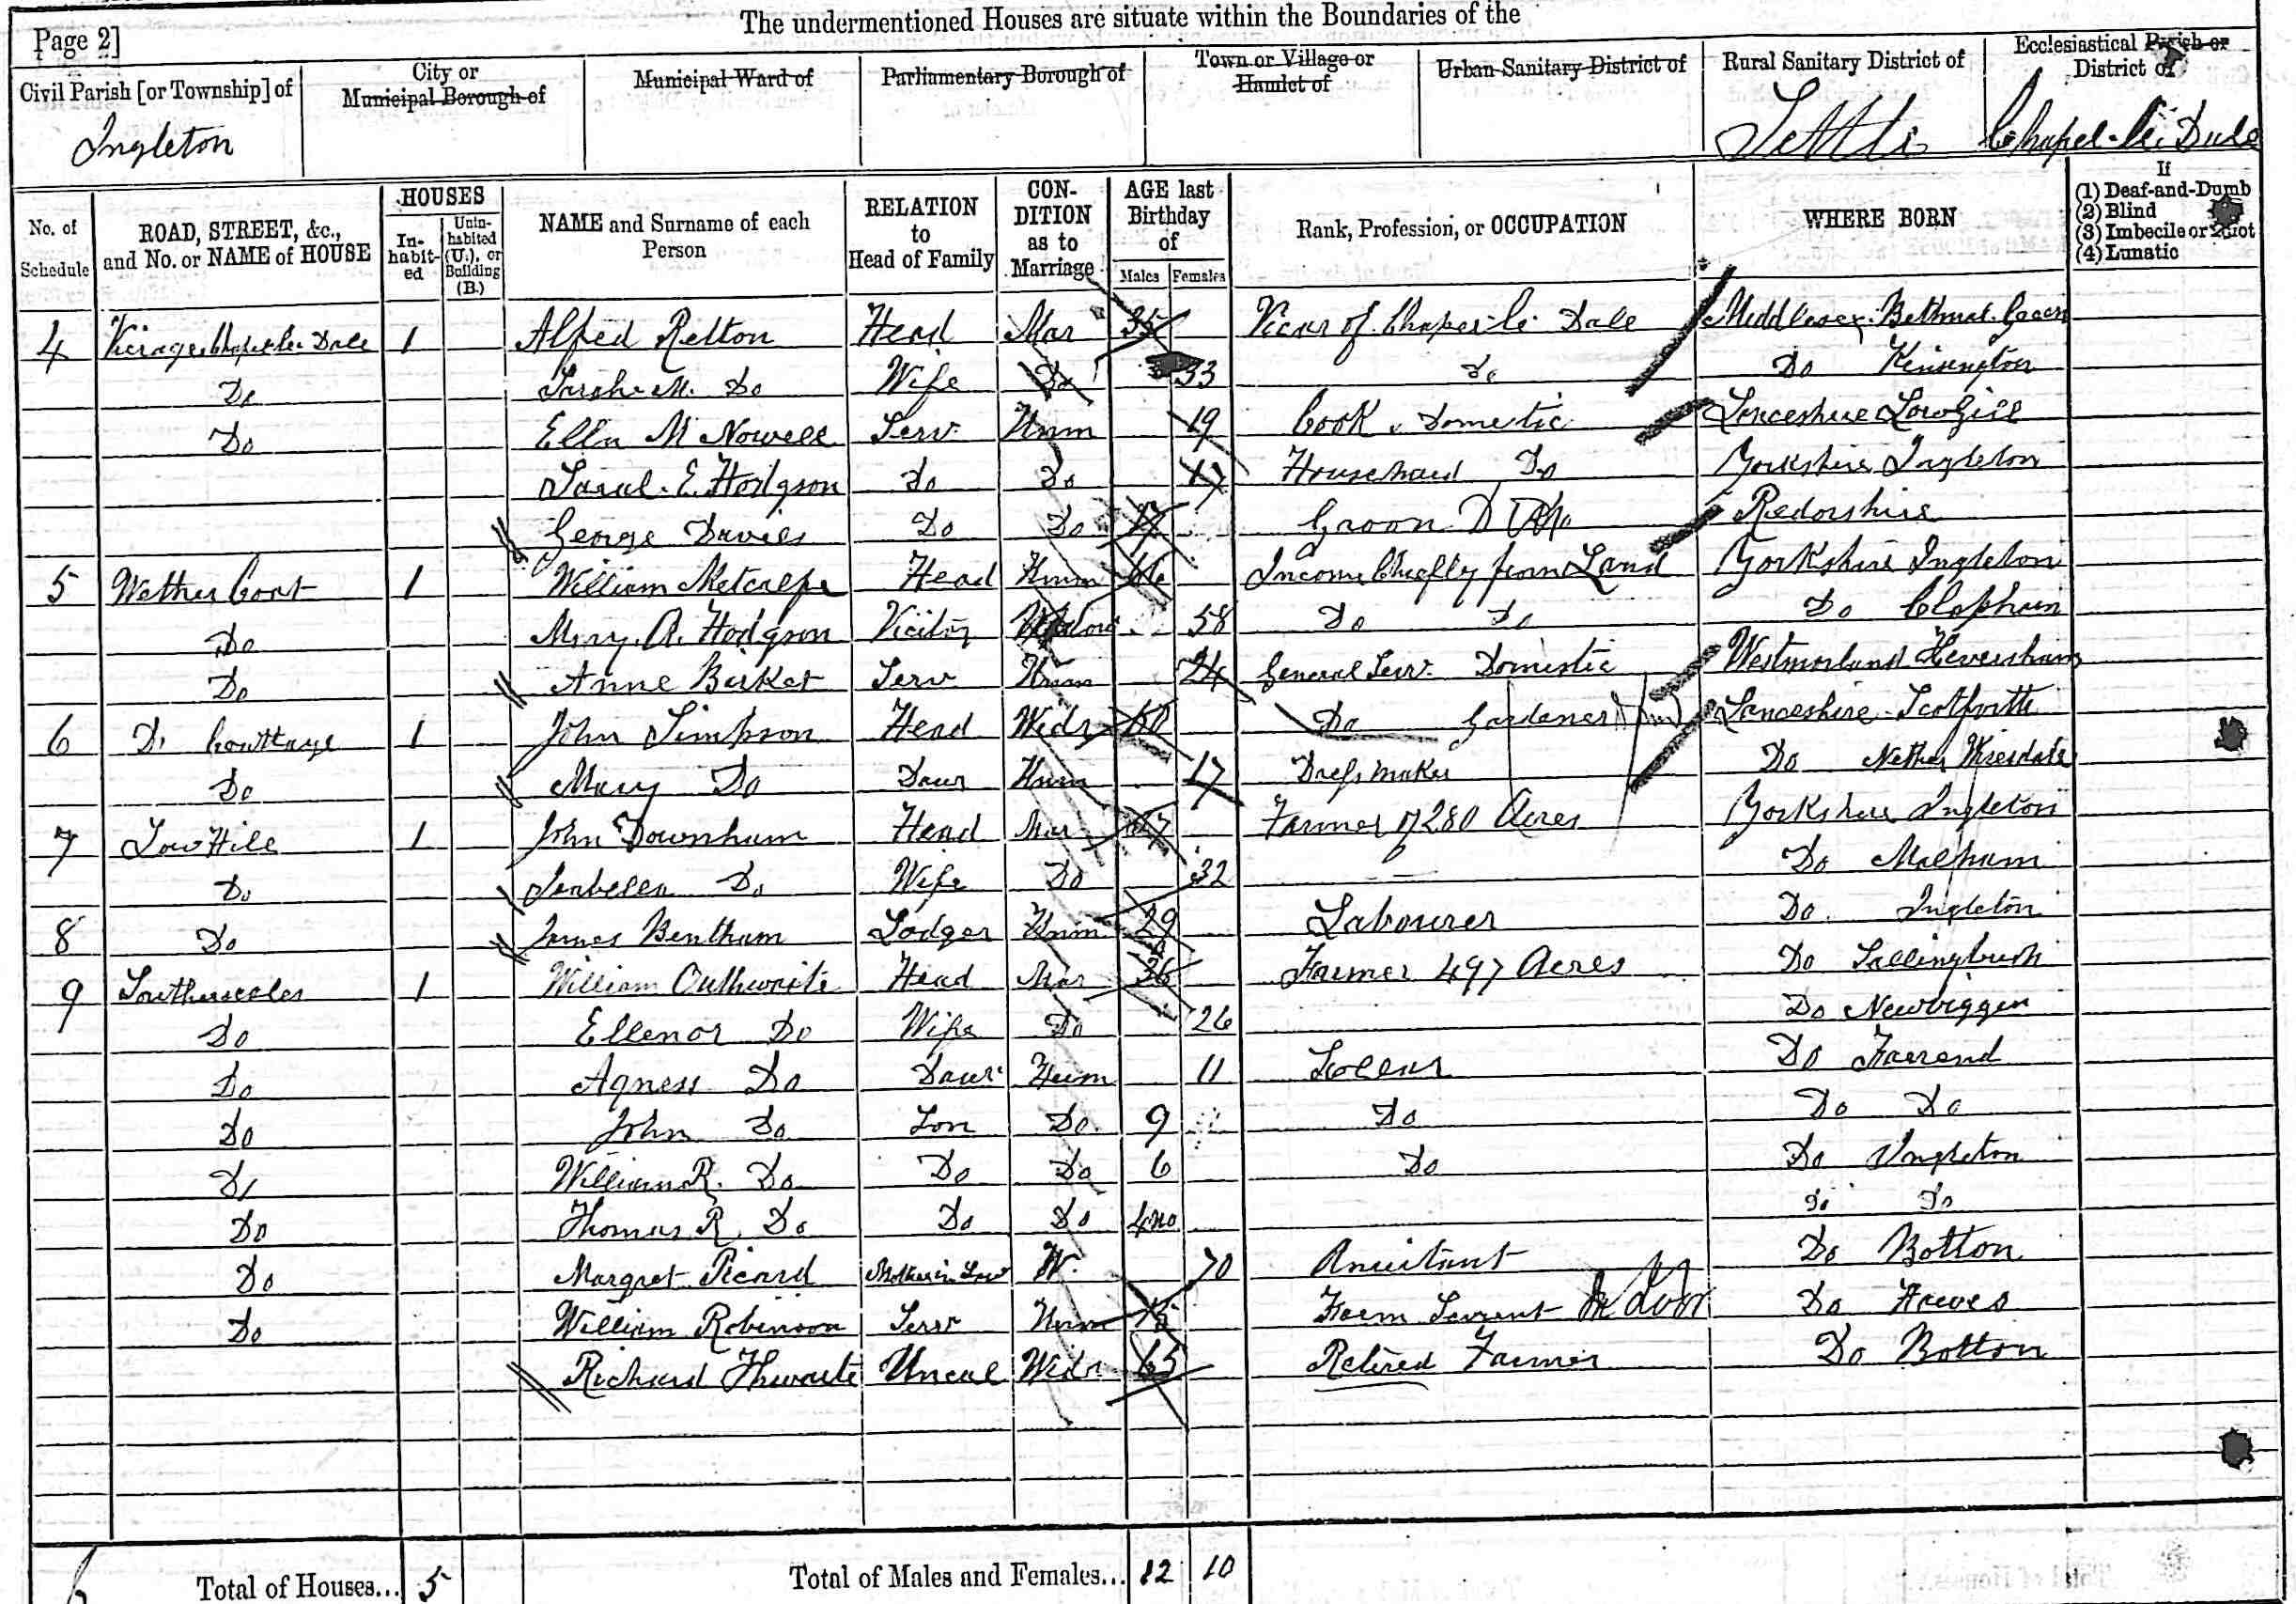 The undermentioned Houses are situate within the Boundaries of the
Page 2]
Civil Parish [or Township] of
City or Municipal Borough of
Municipal Ward of
Parliamentary Borough of
Town or Village or Hamlet of
Urban Sanitary District of
Rural Sanitary District of
Ecclesiastical Parish or District of
Ingleton
Settle
Chapel-le-Dale
No. of Schedule
ROAD, STREET, &c., and No. or NAME of HOUSE
HOUSES
In-habit-ed
Unin-habited (U.), or Building (B.)
NAME and Surname of each Person
RELATION to Head of Family
CON-DITION as to Marriage
AGE last Birthday of
Males
Females
Rank, Profession, or OCCUPATION
WHERE BORN
If
(1) Deaf-and-Dumb
(2) Blind
(3) Imbecile or Idiot
(4) Lunatic
4 Vicrage Chapel le Dale 1 Alfred Relton Head Mar 35 Vicar of Chapel le Dale Middlesex Bethnal Green
Do Sarah M. Do Wife Do 33 Do Do Kinsington
Do Ellen M Nowell Serv Unm 19 Cook Domestic Lanceshire Lowgill
Sarah E. Hodgson Do Do 17 Housemaid Do Yorkshire Ingleton
George Davies Do Do 17 Groom Redorshire
5 Wether Coat 1 William Metcalfe Head Unm Income Chiefly from Land Yorkshire Ingleton
Do Mary A. Hodgson Widow 58 Do Do Do Clapham
Do Anne Birket Serv Unm 24 General Serv. Domestic Westmorland Heversham
6 Do Couttage 1 John Simpson Head Widr 60 Do Gardener Lanceshire Scotforth
Do Mary Do Daur Unm 17 Dress maker Do Nether Wiresdale
7 Low Hill 1 John Downham Head Mar Farmer of 280 Acres Yorkshire Ingleton
Do Isabella Do Wife Do 32 Do Malham
8 Do James Bentham Lodger Unm 29 Labourer Do Ingleton
9 Southerscales 1 William Outhwaite Head Mar 36 Farmer 497 Acres Do
Do Ellenor Do Wife Do 26 Do Newbiggen
Do Agness Do Daur Unm 11 Scolear Do
Do John Do Son Do 9 Do Do Do
Do William R. Do Do Do 6 Do Do Ingleton
Do Thomas R. Do Do Do 4mo Do Do
Do Margret Picard Mother in Law W. 70 Anuitant Do Botton
Do William Robinson Serv Unm 15 Farm Servant In door Do Hawes
Richard Thwaite Uncal Widr 65 Retired Farmer Do Botton
Total of Houses... 5
Total of Males and Females... 12 10